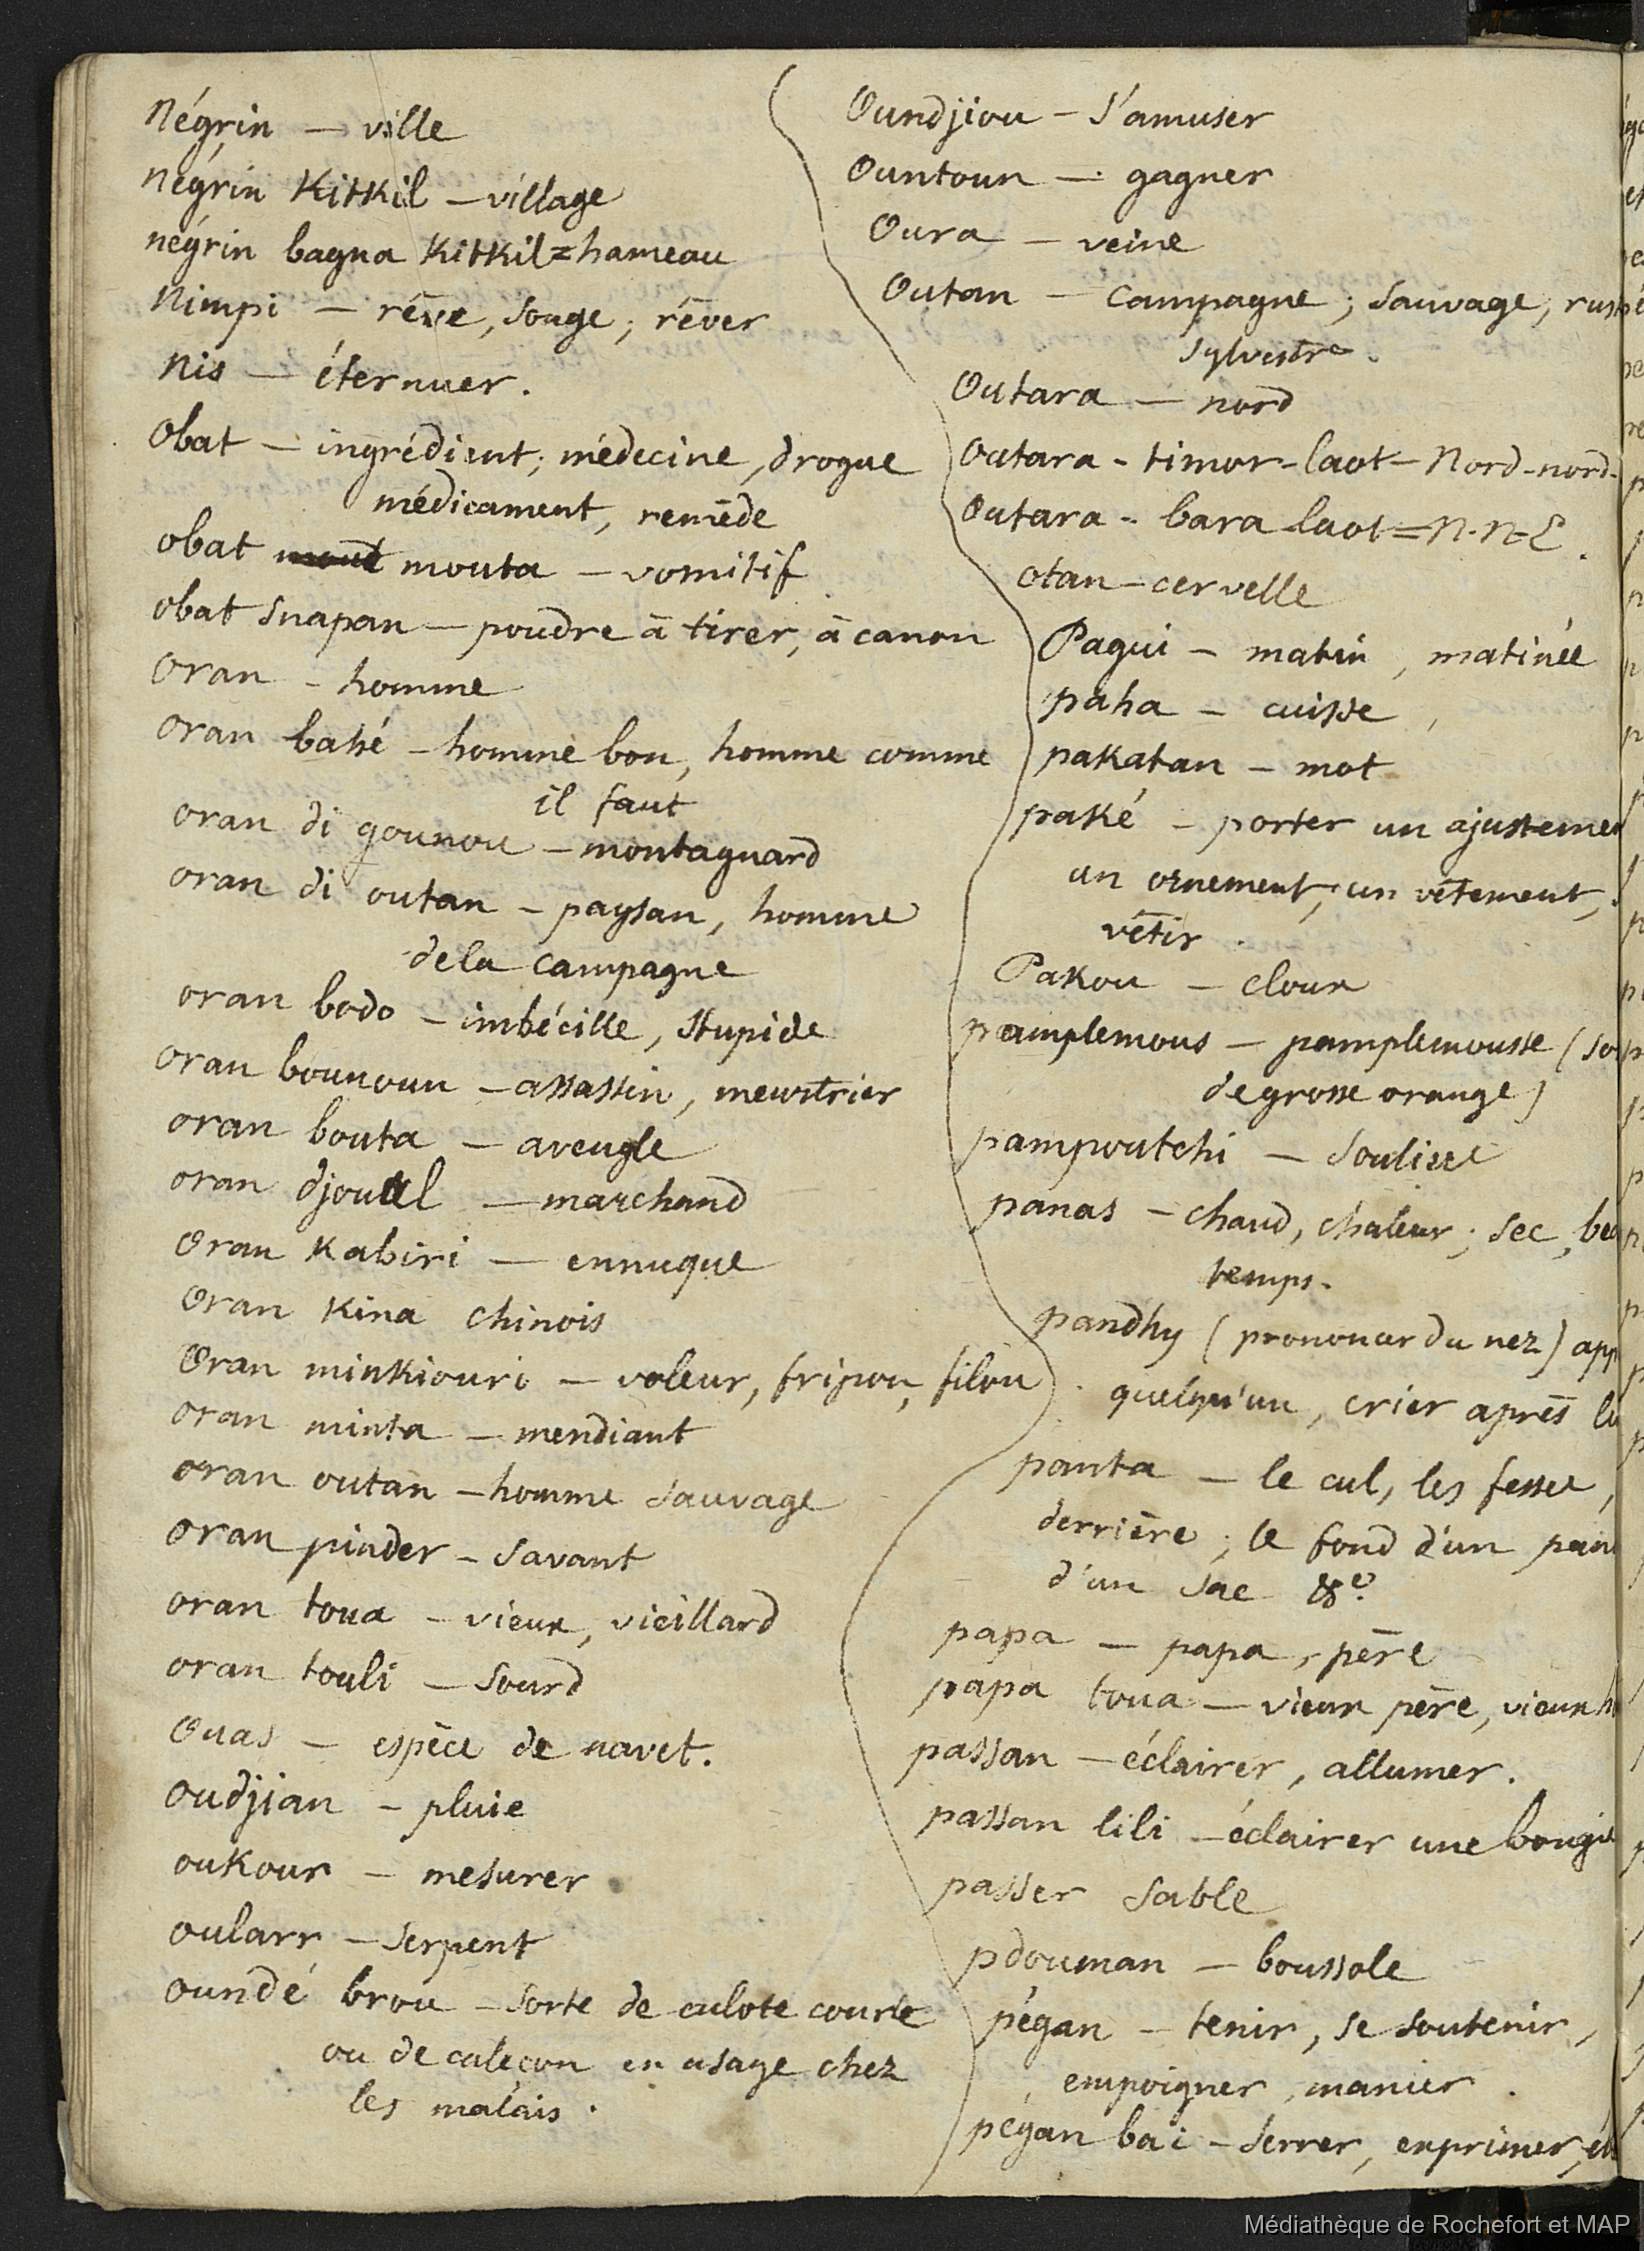 Négrin — ville
négrin Kitkil — village
négrin bagna Kitkil = hameau
Nimpi — rêve, songe; rêver
Nis — éternuer.
Obat — ingrédient; médecine, drogue
médicament, remède
obat mouta — vomitif
obat snapan — poudre à tirer, à canon
oran - homme
oran bahé — homme bon, homme comme
il faut
oran di gounou — montagnard
oran di outan — paysan, homme
de la campagne
oran bodo — imbécille, stupide
oran bounoun — assassin, meurtrier
oran bouta — aveugle
oran djoual — marchand
oran Kabiri — ennuque
oran Kina chinois
oran minkiouri — voleur, fripon, filou
oran minta — mendiant
oran outan — homme sauvage
oran pinder — savant
oran toua — vieux, vieillard
oran touli — sourd
Ouas — espèce de navet.
Oudjian — pluie
oukour — mesurer
oularr — serpent
oundé brou — sorte de culote courte
ou de caleçon en usage chez
les malais.
Oundjiou — s'amuser
Ountoun — gagner
Oura — veine
Outan — campagne; sauvage;
sylvestre.
Outara — nord
Outara - timor - laot — Nord-nord-
Outara - bara laot = N.N-E.
otan — cervelle
Pagui — matin, matinée
paha — cuisse
pakatan — mot
paké — porter un
un ornement, un vêtement,
vêtir.
Pakou — cloux
pamplemous — pamplemousse (
de grosse orange)
pampoutchi — soulier
panas — chaud, chaleur; sec,
temps.
pandhy (prononcer du nez)
quelqu'un, crier après
panta — le cul, les fesses,
derrière; le fond d'un
d'un sac &c.
papa — papa, père
papa toua — vieux père, vieux
passan — éclairer, allumer.
passan lili — éclairer une bougie
passer sable
pdouman — boussole
pégan — tenir, se soutenir,
empoigner, manier.
pégan bai — serrer, exprimer,
Médiathèque de Rochefort et MAP